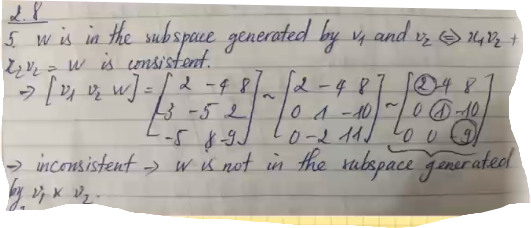 2.8
5. w is in the subspace generated by v₁ and v₂ ⇔ x₁v₂ +
x₂v₂ = w is consistent.
→ [v₁ v₂ w] = [2 -4 8; 3 -5 2; -5 8 -9] ~ [2 -4 8; 0 1 -10; 0 -2 11] ~ [2 -4 8; 0 1 -10; 0 0 9]
→ inconsistent → w is not in the subspace generated
by v₁ x v₂.